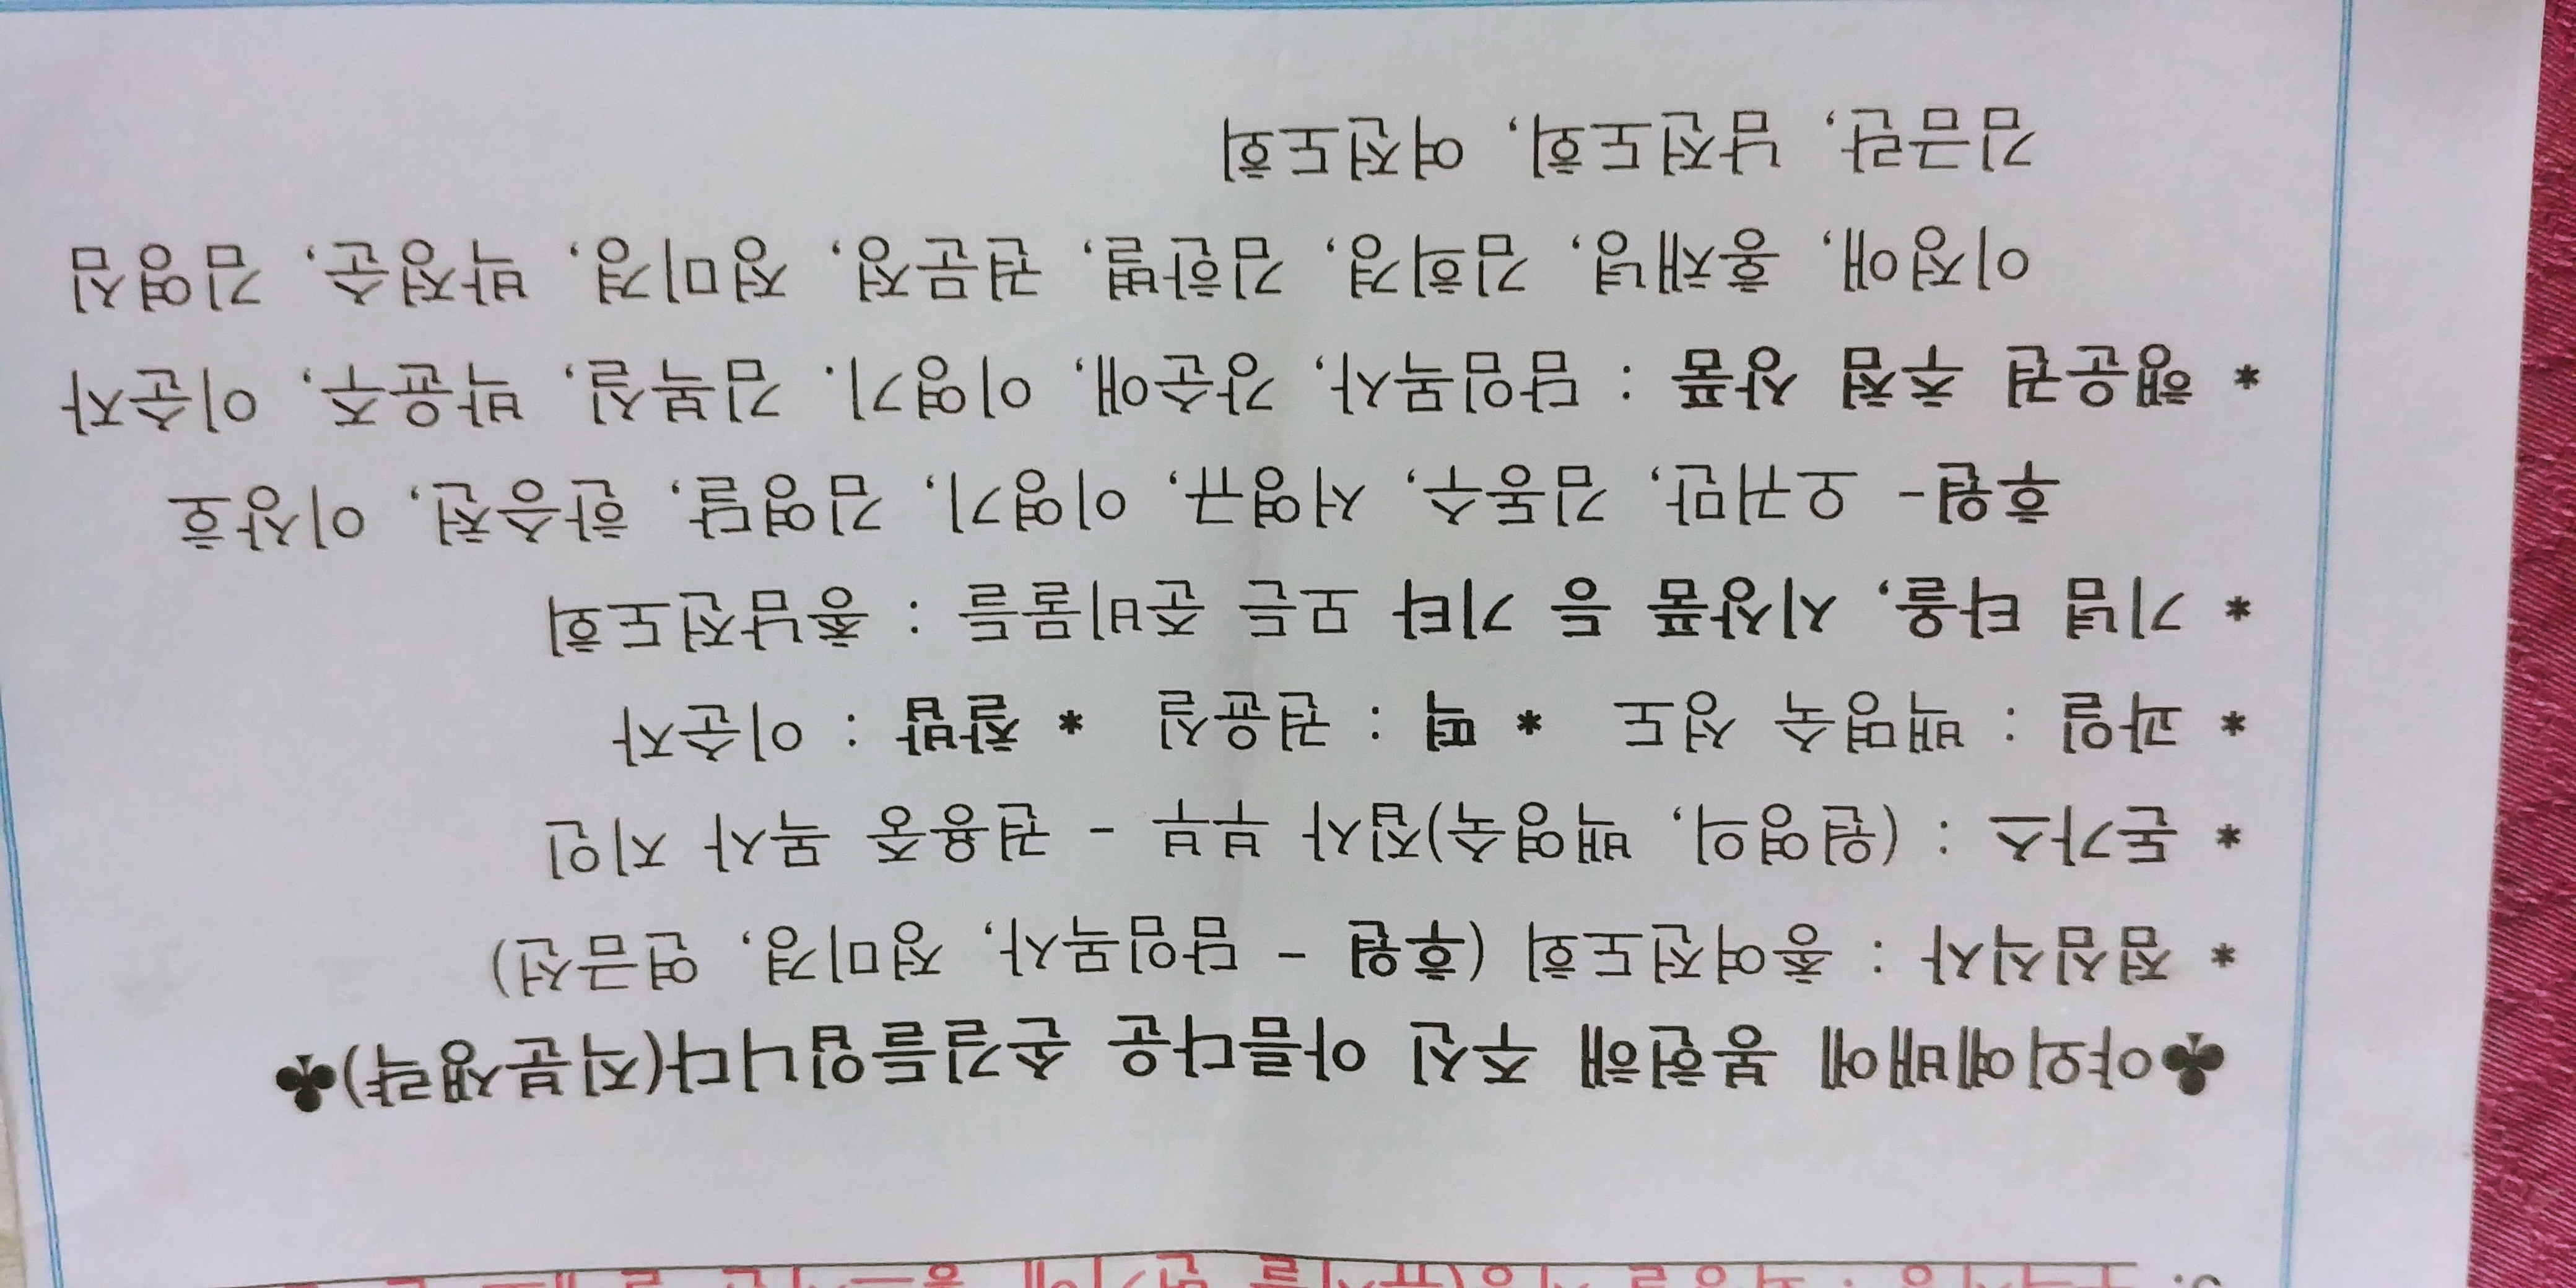 ♣야외예배에 봉헌해 주신 아름다운 손길들입니다(직분생략)♣
* 점심식사 : 총여전도회 (후원 - 담임목사, 정미경, 연금선)
* 돈가스 : (원영의, 백영숙)집사 부부 - 권용중 목사 지인
* 과일 : 백영숙 성도 * 떡 : 권용실 * 찰밥 : 이순자
* 기념 타올, 시상품 등 기타 모든 준비물들 : 총남전도회
후원- 오귀만, 김동수, 서영규, 이영기, 김영달, 한승진, 이상호
* 행운권 추첨 상품 : 담임목사, 강순애, 이영기. 김복실, 박응주, 이순자
이정애, 홍재녕, 김희경, 김한별, 권문정, 정미경, 박정순, 김영심
김금란, 남전도회, 여전도회